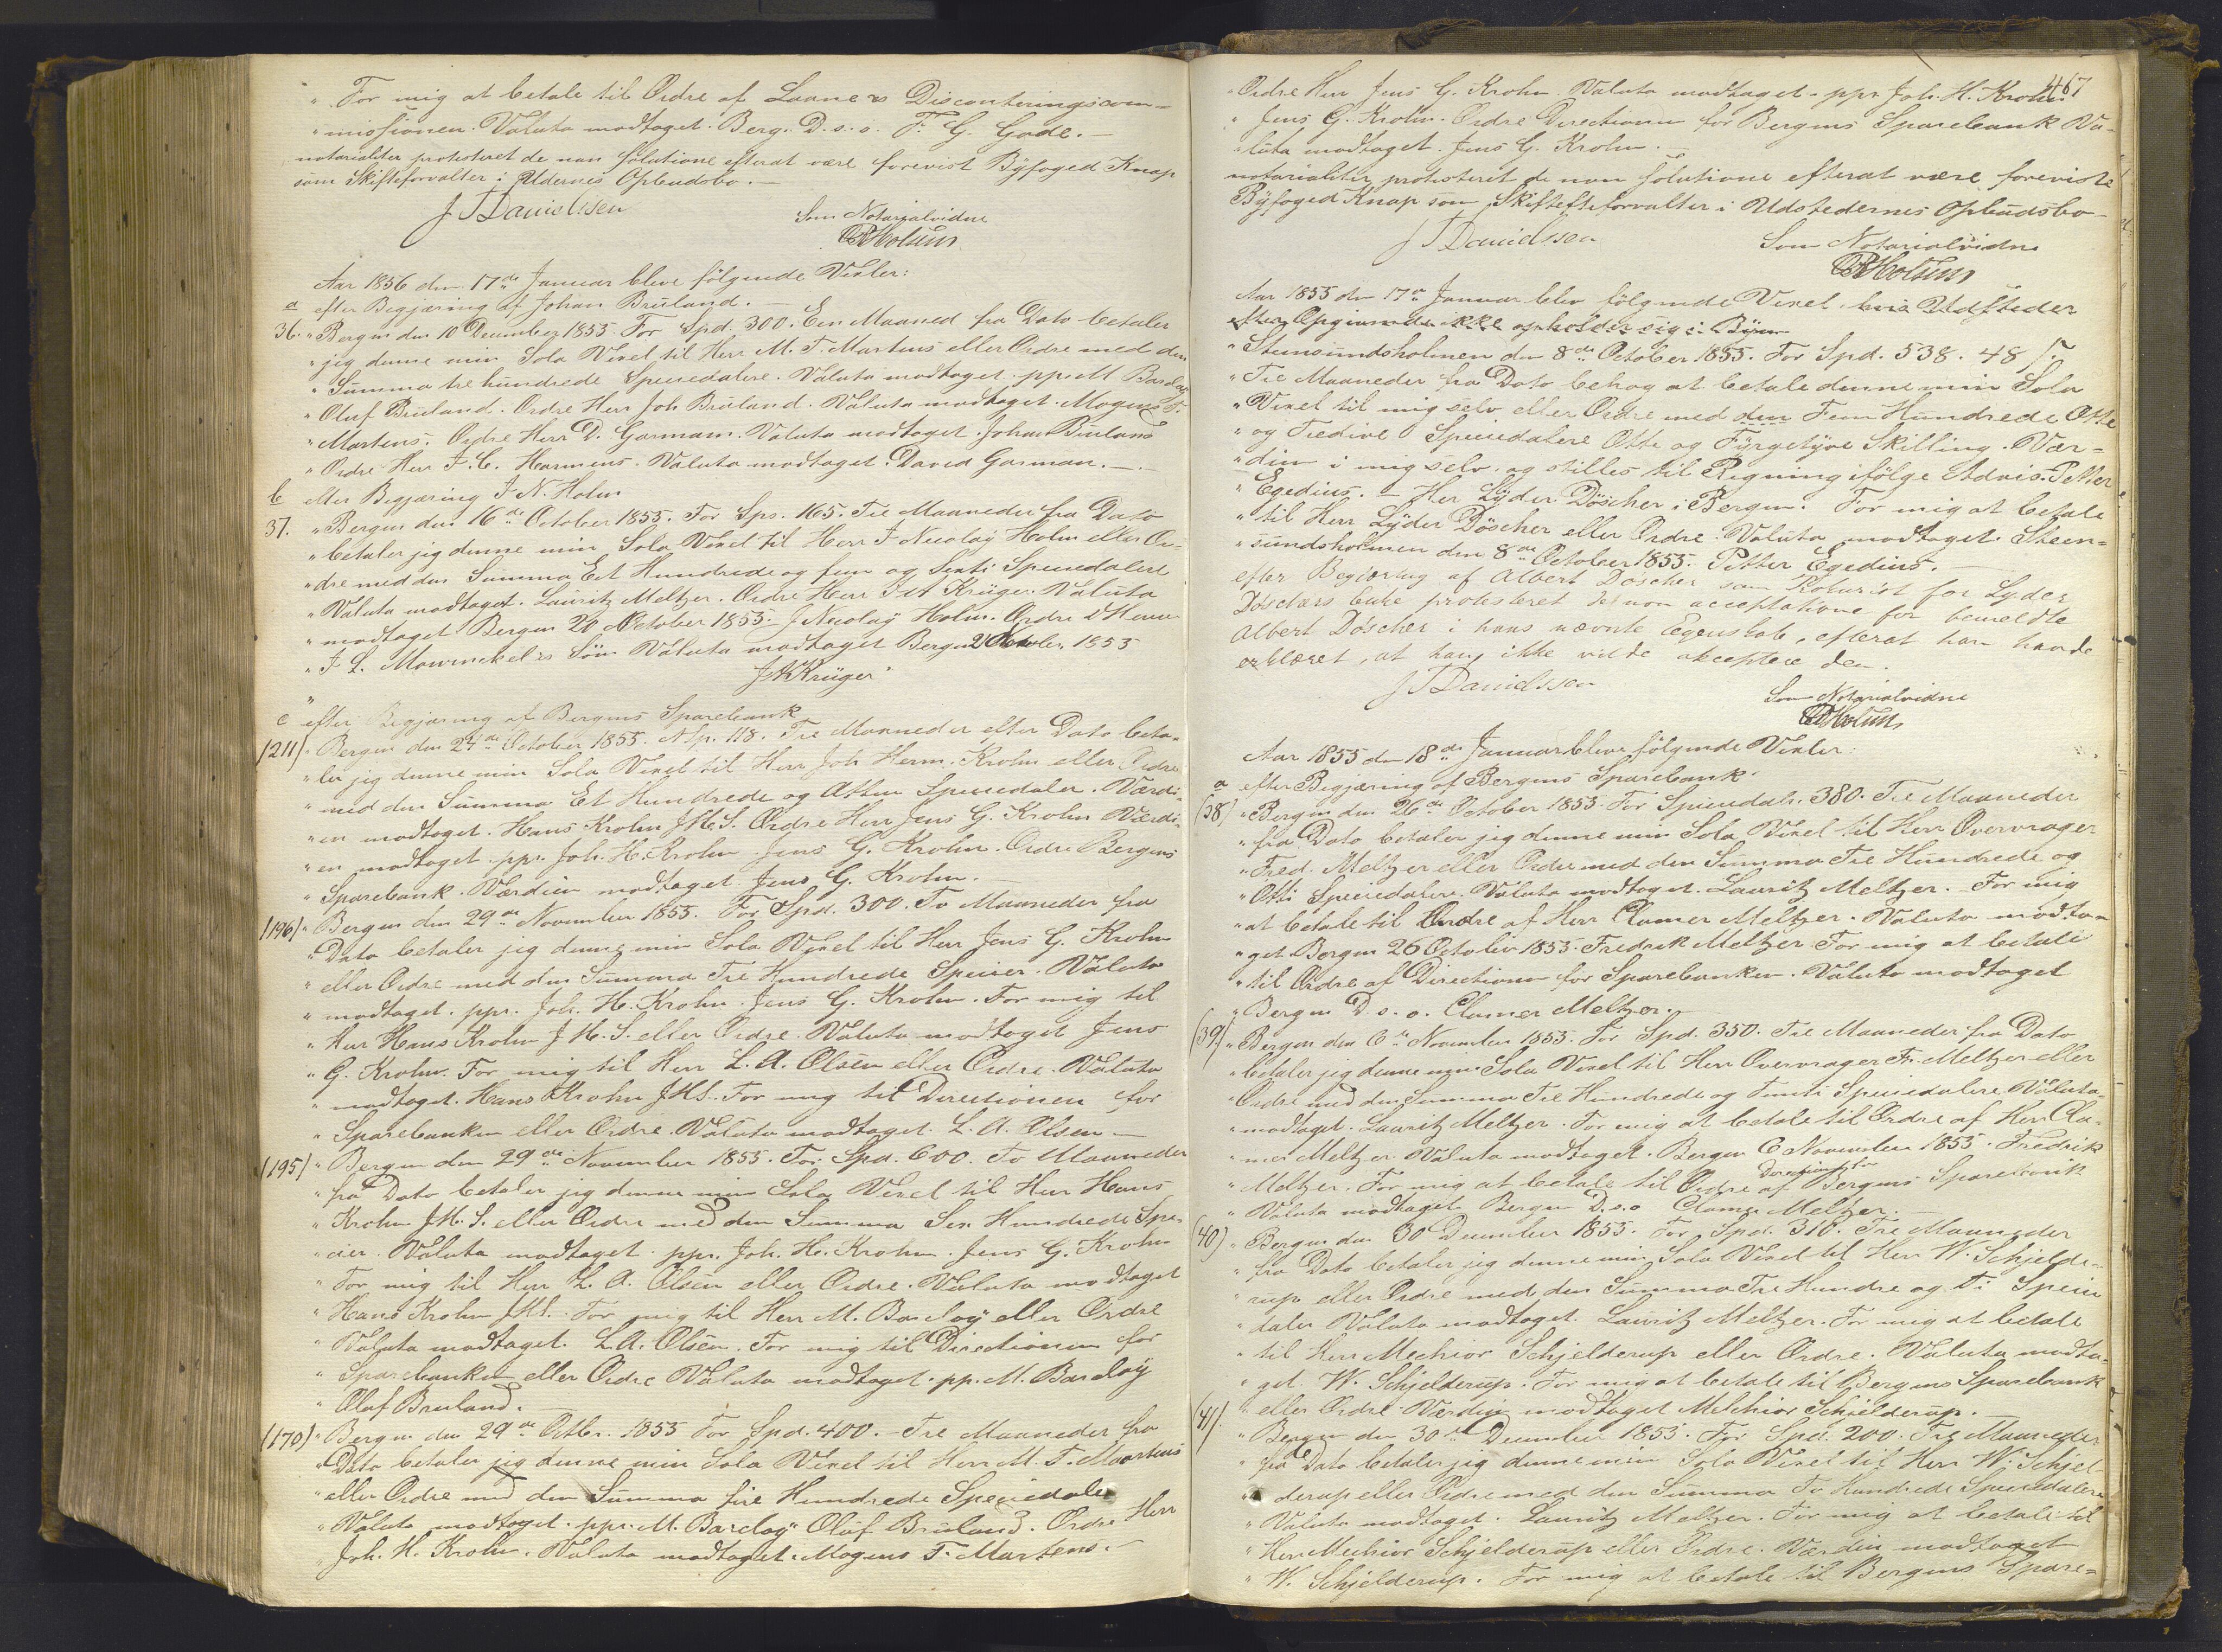 " For mig at betale til Ordre af Laane & Disconteringscom-
" missionen. Valuta modtaget. Berg. D. s. o. F. G. Gade. —
notarialiter protesteret de non solutione efterat være forevist Byfoged Knap
som Skifteforvalter i Udernes Opbudsbo. —
J Danielssen Som Notarialvidne
Aar 1856 den 17de Januar bleve følgende Vexler:
a efter Begjæring af Johan Bruland. —
36. " Bergen den 10 December 1855. For Spd. 300. Een Maaned fra Dato betaler
" jeg denne min Sola Vexel til Herr M. T. Martens eller Ordre med den
" Summa tre hundrede Speciedalere. Valuta modtaget pp. M Barclay
" Oluf Bruland. Ordre Herr Joh Bruland. Valuta modtaget. Mogens T.
" Martens. Ordre Herr D. Garmann. Valuta modtaget. Johan Bruland
" Ordre Herr F. C. Harmens. Valuta modtaget. David Garman. —
b efter Begjæring J. N. Holm
37. " Bergen den 16de October 1855. For Sps. 165. Tre Maaneder fra Dato
" betaler jeg denne min Sola Vexel til Herr J Nicolaÿ Holm eller Or-
" dre med den Summa Eet Hundrede og fem og Sexti Speciedalere
" Valuta modtaget. Lauritz Meltzer. Ordre Herr J A Krüger. Valuta
" modtaget Bergen 20 October 1855. J Nicolaÿ Holm. Ordre D'Herrer
" J. L. Mowinckel & Søn Valuta modtaget Bergen 21 October 1855
J A Krüger "
c efter Begjæring af Bergens Sparebank
(211) " Bergen den 24de October 1855. NSp. 118. Tre Maaneder efter Dato beta-
" ler jeg denne min Sola Vexel til Herr Joh Herm. Krohn eller Ordre
" med den Summa Et Hundrede og Atten Speciedaler. Værdi-
" en modtaget. Hans Krohn J.H.S. Ordre Herr Jens G. Krohn Værdi-
" en modtaget. ppr. Joh. H. Krohn Jens G. Krohn. Ordre Bergens
" Sparebank. Værdien modtaget Jens G. Krohn. —
(196) " Bergen den 29de November 1855. For Spd. 300. To Maaneder fra
" Dato betaler jeg denne min Sola Vexel til Herr Jens G. Krohn
" eller Ordre med den Summa Tre Hundrede Specier. Valuta
" modtaget. ppr. Joh. H. Krohn. Jens G. Krohn. For mig til
" Herr Hans Krohn J. H. S. eller Ordre. Valuta modtaget Jens
" G. Krohn. For mig til Herr L. A. Olsen eller Ordre. Valuta
" modtaget. Hans Krohn JHS. For mig til Directionen for
" Sparebanken eller Ordre. Valuta modtaget. L. A. Olsen —
(195) " Bergen den 29de November 1855. For Spd. 600. To Maaneder
" fra Dato betaler jeg denne min Sola Vexel til Herr Hans
" Krohn J.H.S. eller Ordre med den Summa Sex Hundrede Spe-
" cier. Valuta modtaget. ppr. Joh. H. Krohn. Jens G. Krohn
" For mig til Herr L. A. Olsen eller Ordre. Valuta modtaget
" Hans Krohn JHS. For mig til Herr M. Barclaÿ eller Ordre
" Valuta modtaget. L.A. Olsen. For mig til Directionen for
" Sparebanken eller Ordre Valuta modtaget. pp. M. Barclaÿ
" Olaf Bruland. —
(170) " Bergen den 29de Octbr. 1855 For Spd. 400. — Tre Maaneder fra
" Dato betaler jeg denne min Sola Vexel til Herr M. T. Martens
" eller Ordre med den Summa fire Hundrede Speciedaler
" Valuta modtaget. ppr. M. Barclaÿ Oluf Bruland. Ordre Herr
Joh. H. Krohn. Valuta modtaget. Mogens T. Martens. —
467
" Ordre Herr Jens G. Krohn. Valuta modtaget. ppr. Joh. H. Krohn
" Jens G. Krohn. Ordre Directionen for Bergens Sparebank Va-
" luta modtaget. Jens G. Krohn. —
notarialiter protesterit de non solutione efterat være foreviste
Byfoged Knap som Skifteforvalter i Udstedernes Opbudsbo —
J Danielssen Som Notarialvidne
Aar 1855 den 17de Januar blev følgende Vexel, hvis Udsteder
efter Opgivende ikke opholder sig i Byen
" Steensundsholmen den 8de October 1855. For Spd. 538. 48 s.
" Tre Maaneder fra Dato behag at betale denne min Sola
" Vexel til mig selv eller Ordre med den Fem Hundrede Otte
" og Tredive Speciedalere Otte og Fyrgetyve Skilling. Vær-
" dien i mig selv, og stilles til Regning ifølge Advis. Petter
" Egedius. — Herr Lyder Döscher i Bergen. For mig at betale
" til Herr Lyder Döscher eller Ordre. Valuta modtaget. Steen-
" sundsholmen den 8de October 1855. Petter Egedius. —
efter Begjæring af Albert Döscher som Prokurist for Lyder
Döschers bleve protesteret de non acceptatione for bemeldte
Albert Döscher i hans nævnte Egenskab, efterat han havde
erklæret, at han ikke vilde akceptere den.
J Danielssen Som Notarialvidne
Aar 1855 den 18de Januar bleve følgende Vexler:
a efter Begjæring af Bergens Sparebank.
(38) " Bergen den 26de October 1855. For Speciedalr. 380. Tre Maaneder
" fra Dato betaler jeg denne min Sola Vexel til Herr Overvrager
" Fred. Meltzer eller Ordre med den Summa Tre Hundrede og
" Otti Speciedalere. Valuta modtaget. Lauritz Meltzer. For mig
" at betale til Ordre af Herr Clamer Meltzer. Valuta modta-
" get Bergen 26 October 1855. Fredrik Meltzer For mig at betale
" til Ordre af Directionen for Sparebanken. Valuta modtaget
" Bergen D. s. o. Clamer Meltzer. —
(39) " Bergen den 6te November 1855. For Spd. 350. Tre Maaneder fra Dato
" betaler jeg denne min Sola Vexel til Herr Overvrager Fr. Meltzer eller
" Ordre med den Summa Tre Hundrede og Femti Speciedalere. Valuta
" modtaget. Lauritz Meltzer. For mig at betale til Ordre af Herr Cla-
" mer Meltzer. Valuta modtaget. Bergen 6 November 1855. Fredrik
" Meltzer. For mig at betale til Ordre af Directionen for Bergens Sparebank
" Valuta modtaget Bergen D. s. o Clamer Meltzer. —
(40) " Bergen den 30 December 1855. For Spd. 310. Tre Maaneder
" fra Dato betaler jeg denne min Sola Vexel til Herr W. Schjelde-
" rup eller Ordre med den Summa Tre Hundre og Ti Specie
" daler Valuta modtaget. Lauritz Meltzer. For mig at betale
" til Herr Mechior Schjelderup eller Ordre. Valuta modta-
" get. W. Schjelderup. For mig at betale til Bergens Sparebank
" eller Ordre Værdien modtaget Melchior Schjelderup. —
(41). " Bergen den 30te December 1855. For Spd. 200. Tre Maaneder
" fra Dato betaler jeg denne min Sola Vexel til Herr W. Schjel-
" derup eller Ordre med den Summa To Hundrede Speciedalere
" Valuta modtaget. Lauritz Meltzer. For mig at betale til
" Herr Mechior Schjelderup eller Ordre. Værdien modtaget
" W. Schjelderup. For mig at betale til Bergens Spare-